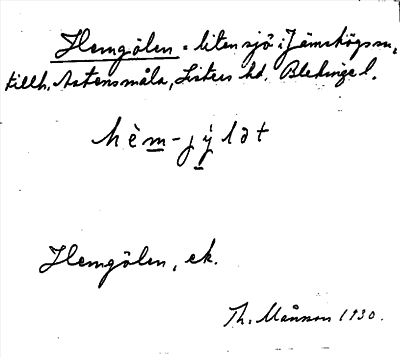 Hemgölen = liten sjö i Jämshögs sn,
tillh. Astensmåla, Listers hd. Blekinge l.
hèm-jỳlət
Hemgölen, ek.
Th. Månsson 1930.